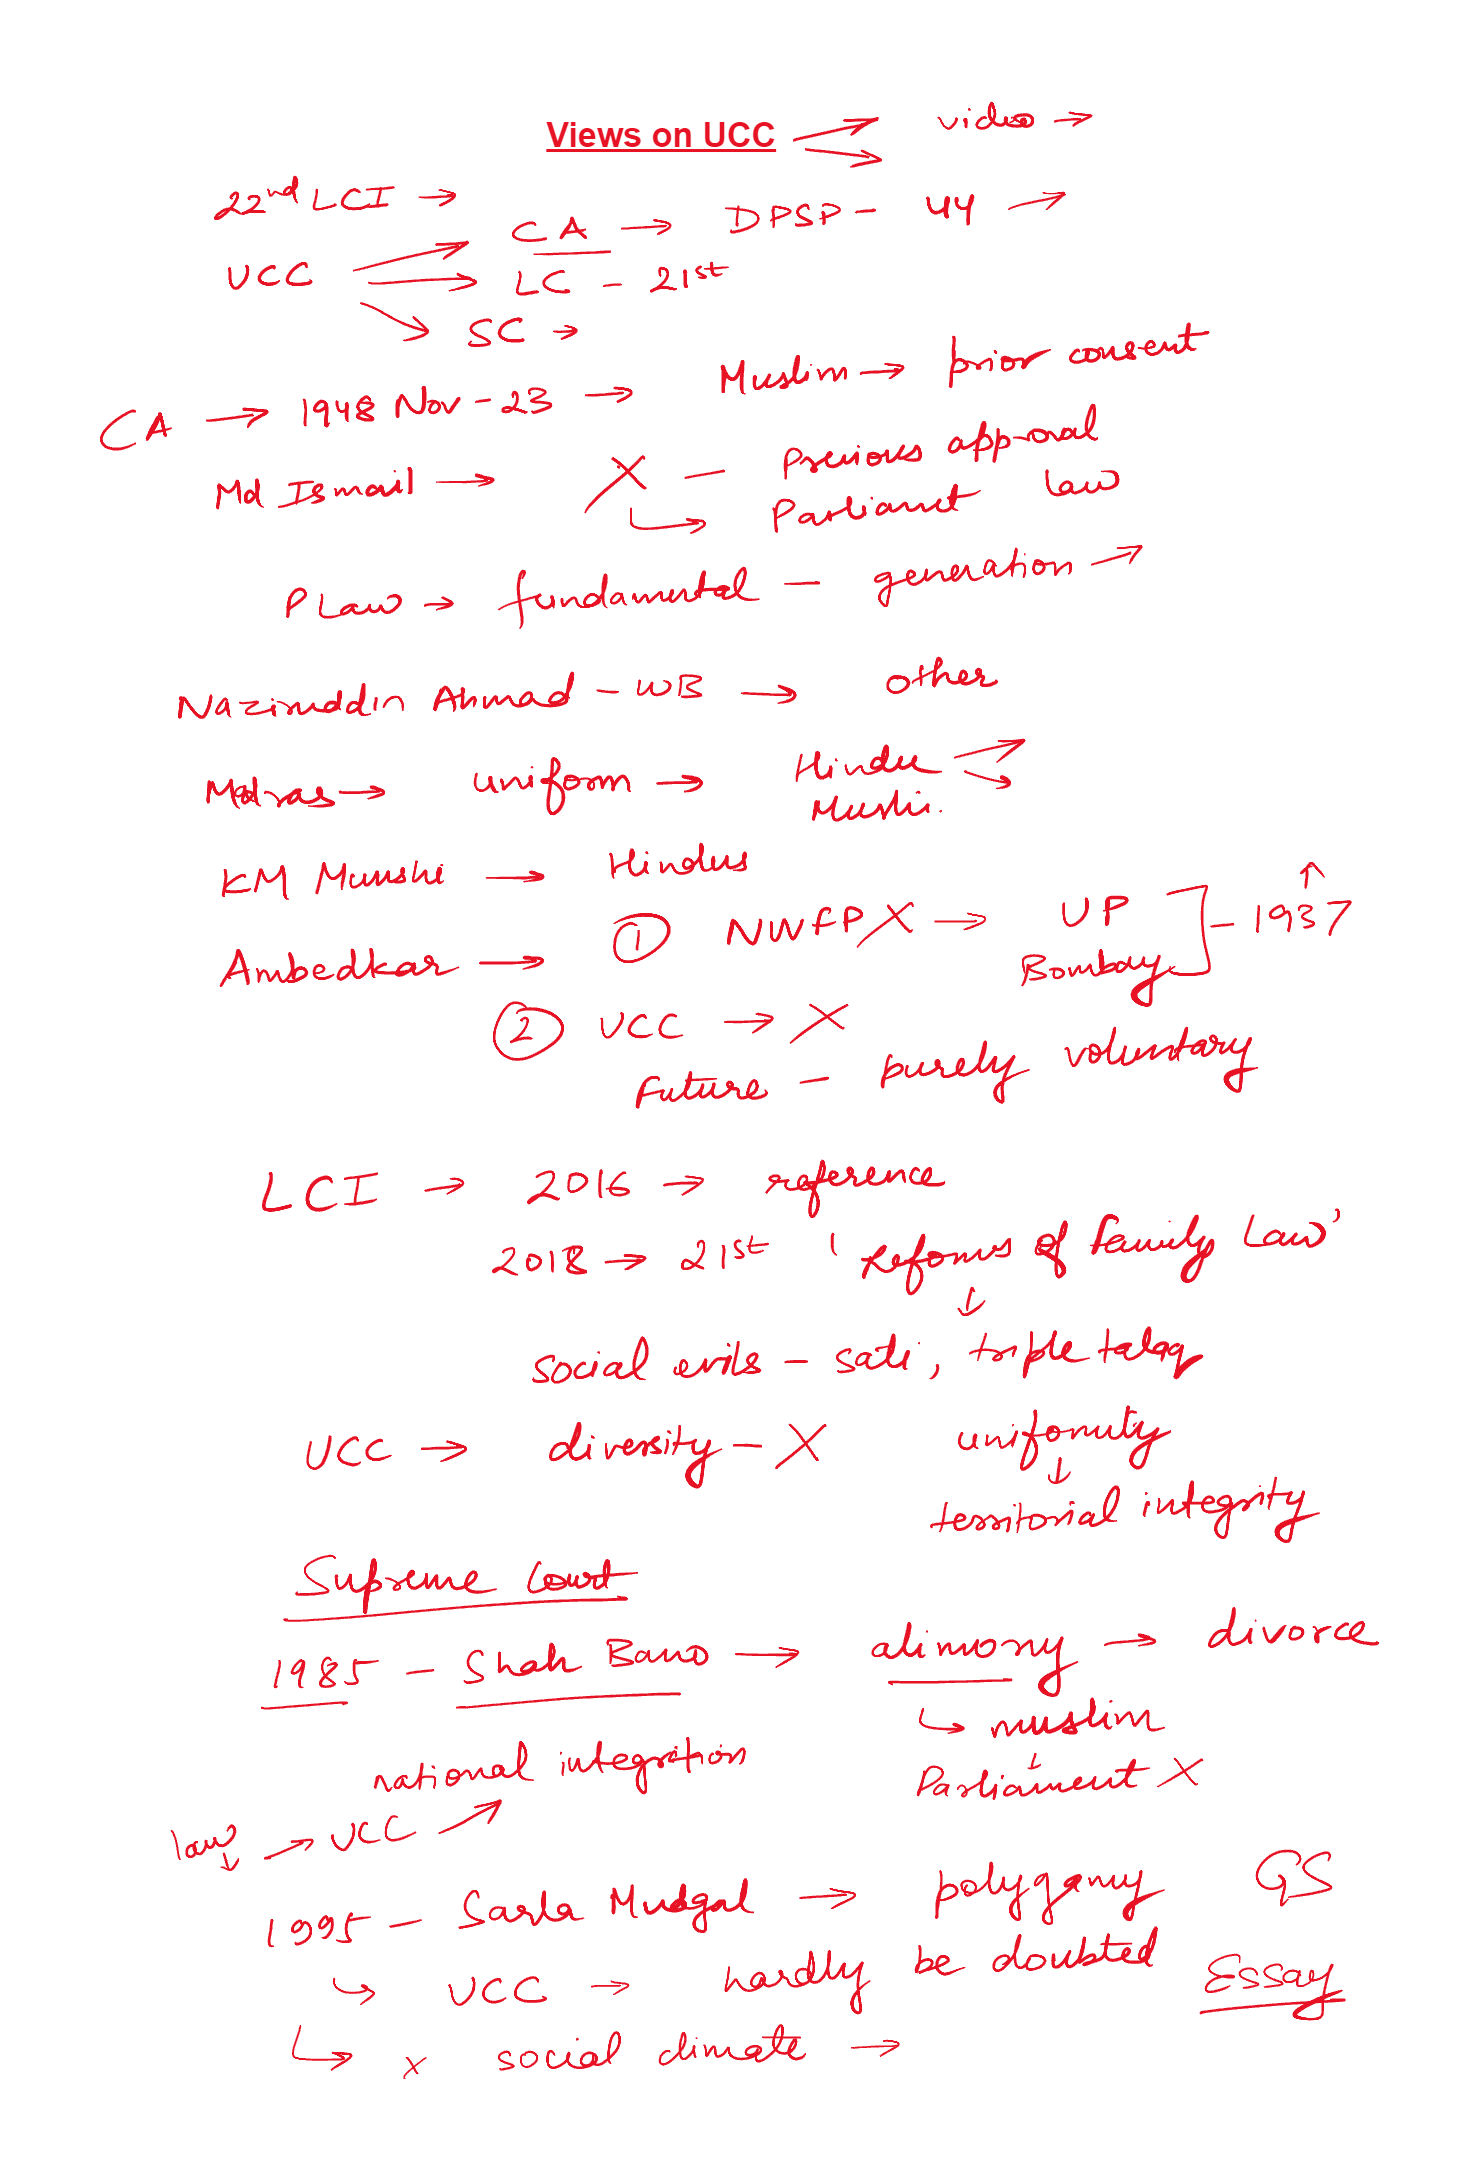 Views on UCC → video →
22nd LCI →
CA → DPSP - 44 →
UCC → LC - 21st
SC →
CA → 1948 Nov - 23 → Muslim → prior consent
Md Ismail → X - Previous approval
↳ Parliamet law
P Law → fundamental - generation →
Naziruddin Ahmad - WB → other
Madras → uniform → Hindu
Musli.
KM Munshi → Hindus
Ambedkar → ① NWFP X → UP
Bombay ] - 1937 ↑
② UCC → X
Future - purely voluntary
LCI → 2016 → reference
2018 → 21st 'Reforms of Family Law'
↓
social evils - sati, triple talaq
UCC → diversity - X uniformity
↓
territorial integrity
Supreme Court
1985 - Shah Bano → alimony → divorce
↳ muslim
national integration
Parliament X
law → UCC ↗
↓
1995 - Sarla Mudgal → polygamy GS
↳ UCC → hardly be doubted Essay
↳ x social climate →